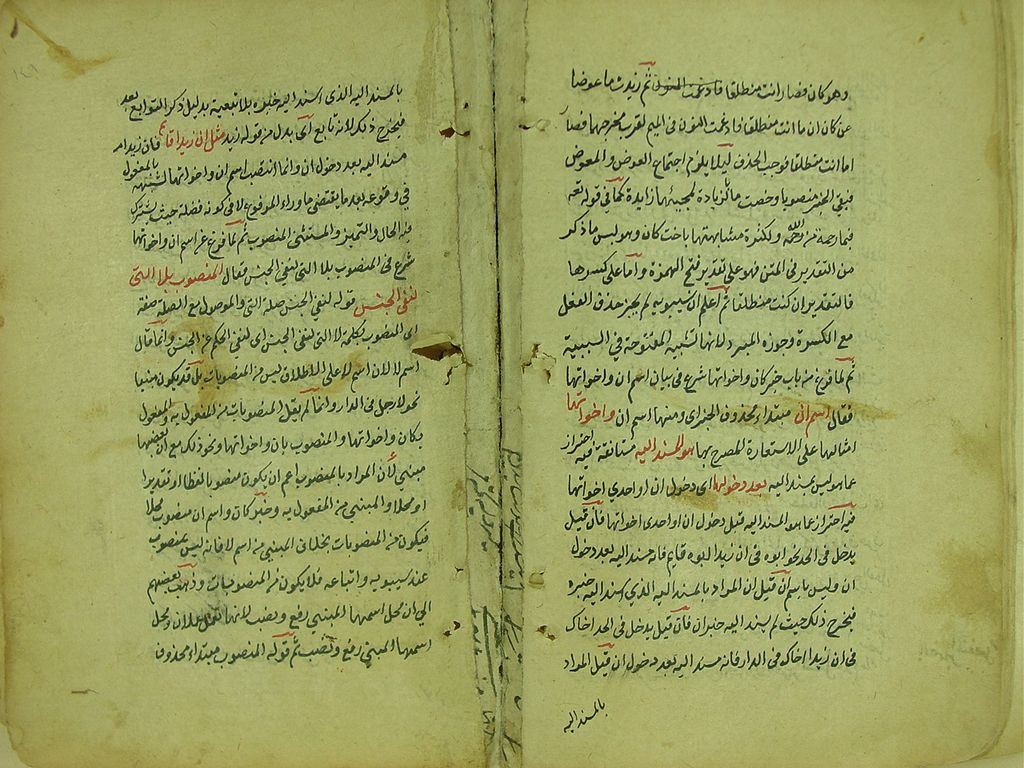 وهو كان فصار انت منطلقا فادغمت النون ثم زيدت ما عوضا
عن كان ان ما انت منطلقا فادغمت النون في الميم لقرب مخرجهما فصار
اما انت منطلقا فوجب الحذف ليلا يلزم اجتماع العوض والمعوض
فبقي الخبر منصوبا وخصت ما بالزيادة لمجيئها زايدة كما في قوله تعه
فبما رحمة من الله ولكثرة مشابهتها باخت كان وهو ليس ما ذكر
من التقدير في المتن فهو على تقدير فتح الهمزة واما على كسرها
فالتقدير ان كنت منطلقا ثم اعلم ان سيبويه لم يجيز حذف الفعل
مع الكسرة وجوزه المبرد لانها تشبيه المفتوحة في السببية
ثم لما فرغ من باب خبر كان واخواتها شرع في بيان اسم ان واخواتها
فقال اسم ان مبتداء محذوف الخبر اي ومنها اسم ان واخواتها
امثالها على الاستعارة المصرح بها هو المسند اليه مستانفة فيه احتراز
عما هو ليس بمسند اليه بعد دخولها اي دخول ان او احدى اخواتها
فيه احتراز عما هو المسند اليه قبل دخول ان او احدى اخواتها فان قيل
يدخل في الحد نحو ابوه في ان زيدا ابوه قايم فانه مسند اليه بعد دخول
ان وليس باسم ان قيل ان المراد بالمسند اليه الذي اسند اليه خبره
فيخرج ذلك حيث لم يسند اليه خبر ان فان قيل يدخل في الحد اخاك
في ان زيدا اخاك في الدار فانه مسند اليه بعد دخول ان قيل المراد
بالمسند اليه
بالمسند اليه الذي اسند اليه خبره بلا تبعية بدليل ذكر التوابع بعد
فيخرج ذلك لانه تابع اي بدل من قوله زيد مثل ان زيدا قائم فان زيدا
مسند اليه بعد دخول ان وانما انتصب اسم ان واخواتها لشبهه بالمفعول
في وقوعه بعد ما يقتضي ما وراء المرفوع لا في كونه فضلة حيث يشترك
فيه الحال والتميز والمستثنى المنصوب ثم لما فرغ عن اسم ان واخواتها
شرع في المنصوب بلا التي لنفي الجنس فقال المنصوب بلا التي
لنفي الجنس قوله لنفي الجنس صلة التي والموصول مع الصلة صفة
اي المنصوب بكلمة لا التي لنفي الجنس اي لنفي الحكم عن الجنس وانما قال
اسم لا لان اسم لا على الاطلاق ليس من المنصوبات بل قد يكون مبنيا
نحو لا رجل في الدار وانما لم يقل المنصوبات من المفعول به والمفعول
بكان واخواتها والمنصوب بان واخواتها ونحو ذلك مع ان بعضها
مبني لان المراد بالمنصوب اعم ان يكون منصوبا لفظا او تقديرا
او محلا والمبني من المفعول به وخبر كان واسم ان منصوب محلا
فيكون من المنصوبات بخلاف المبني من اسم لا فانه ليس بمنصوب
عند سيبويه واتباعه فلا يكون من المنصوبات وذهب بعضهم
الى ان محل اسمها المبني رفع ونصب لانها تعمل عمل ان ومحل
اسمها المبني رفع ونصب ثم قوله المنصوب مبتداء محذوف